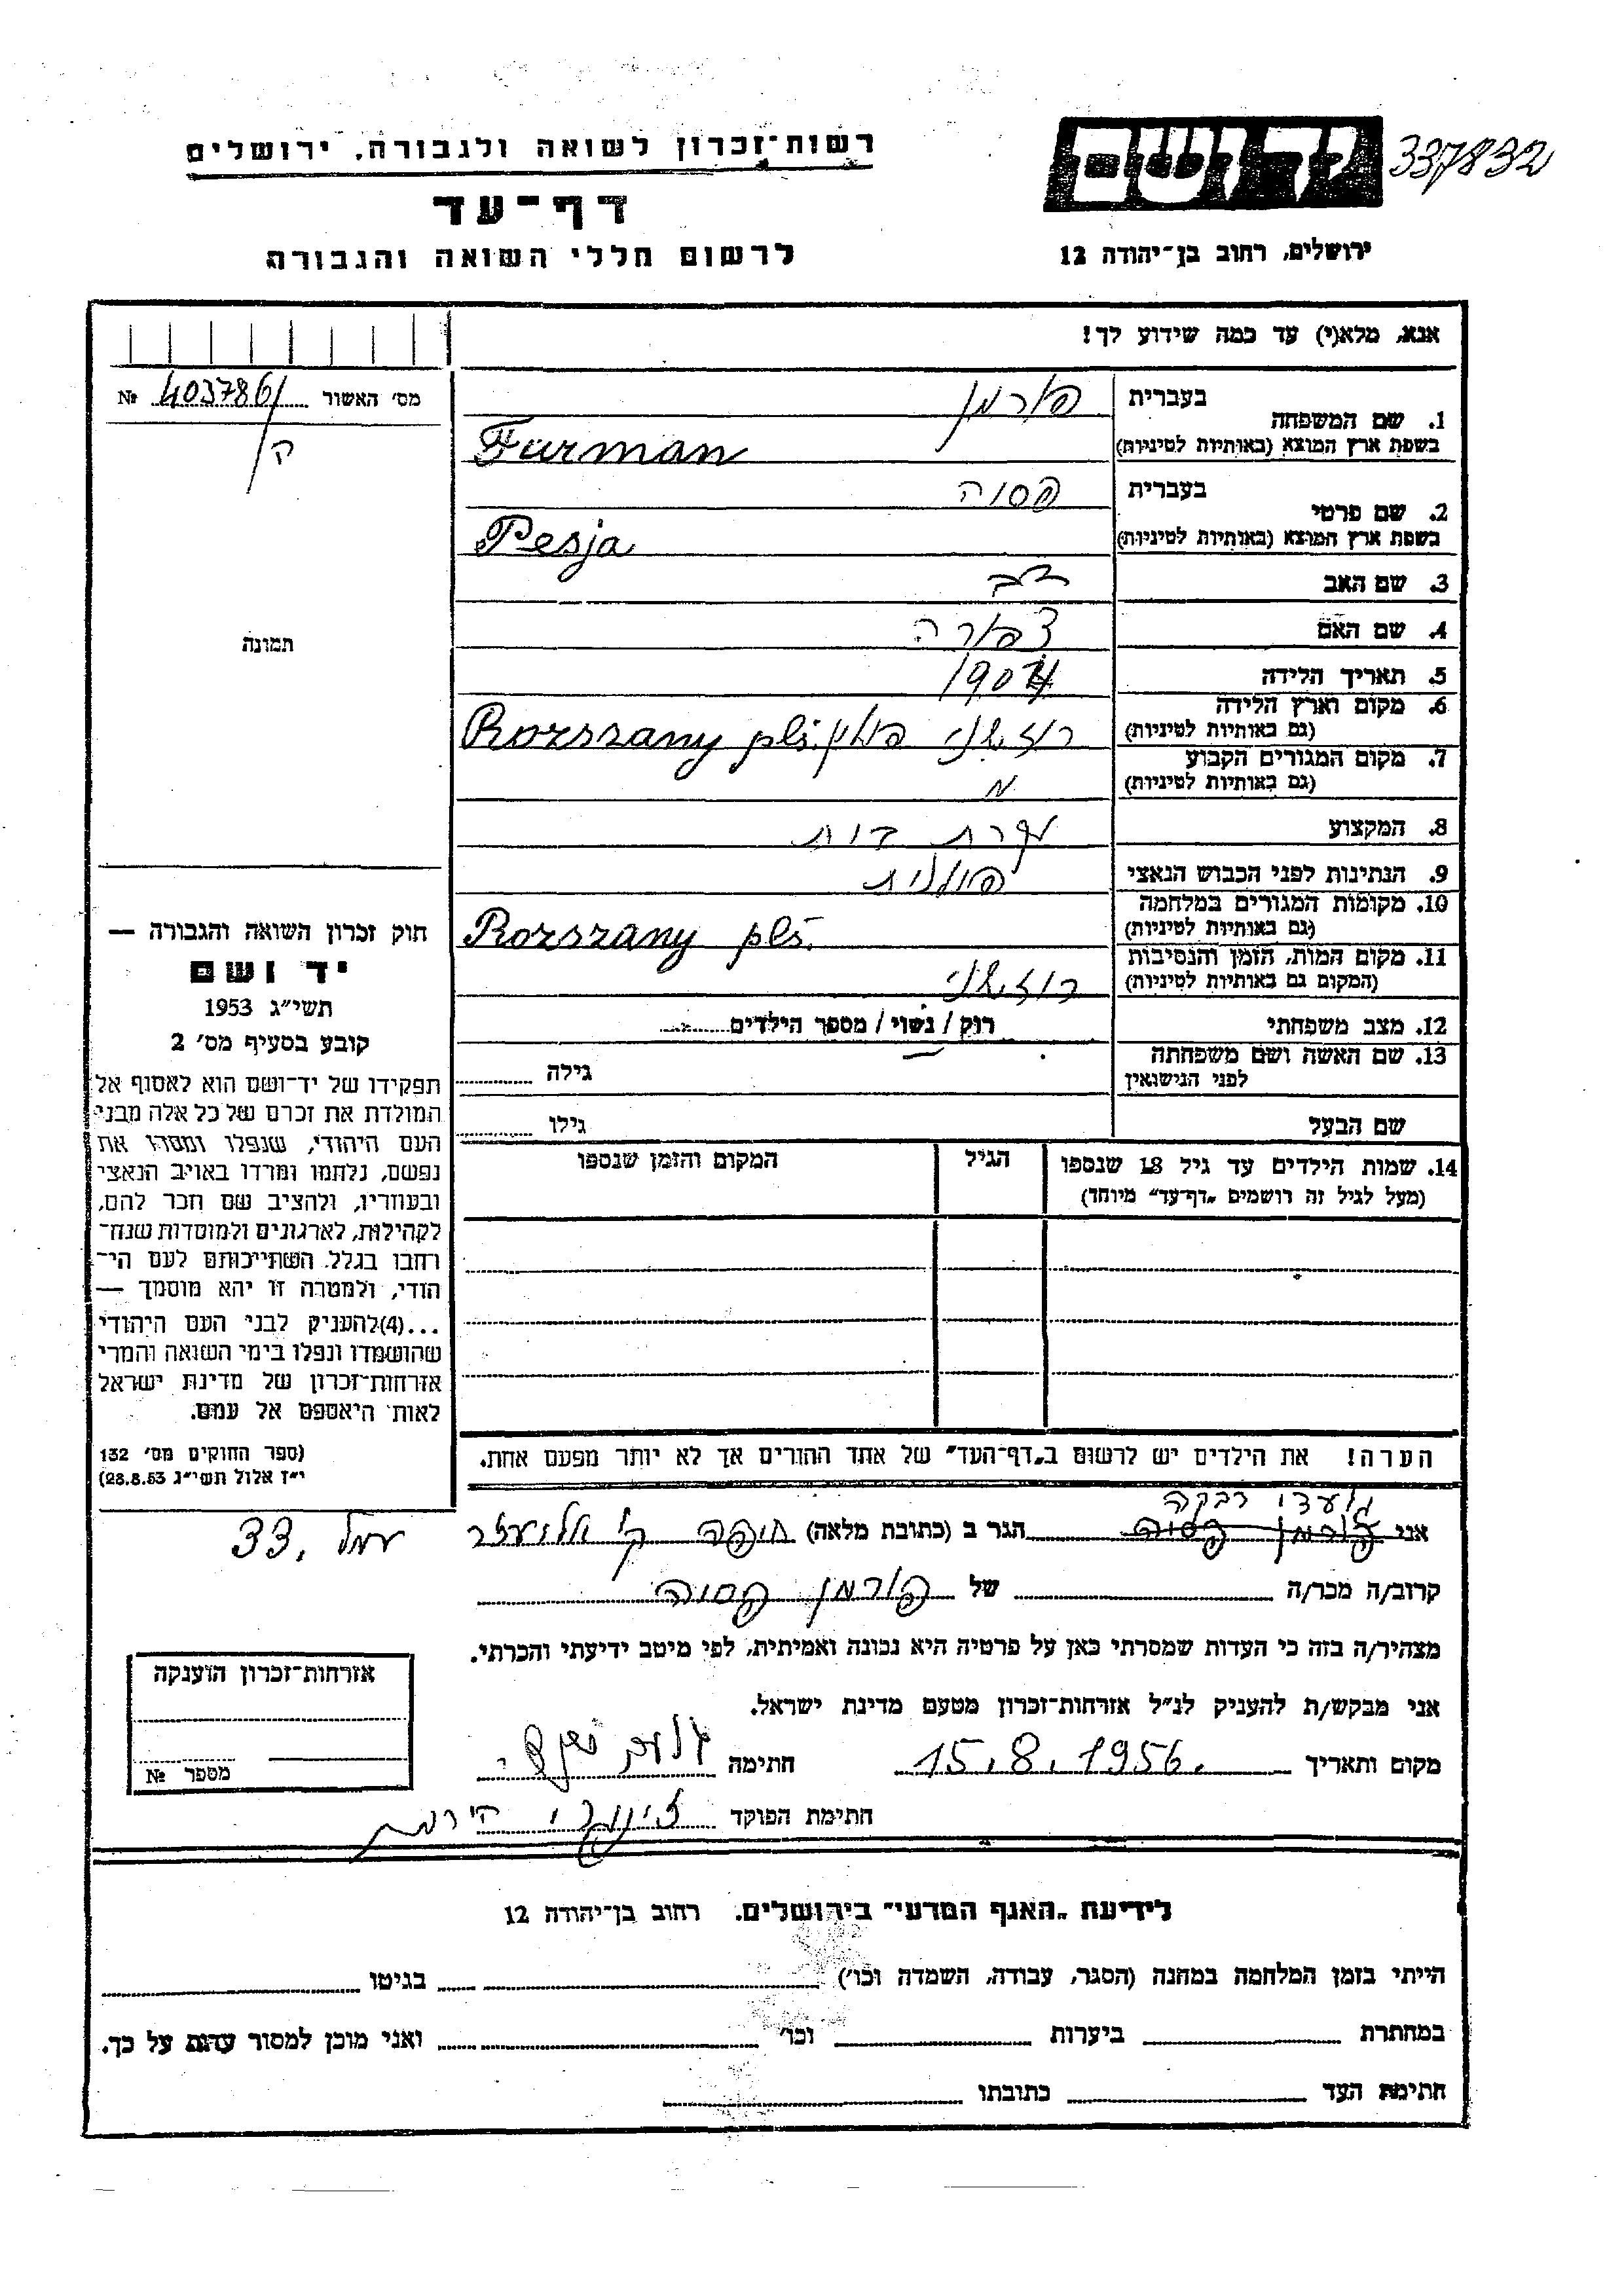 רשות־זכרון לשואה ולגבורה, ירושלים
דף־עד
לרשום חללי השואה והגבורה
יד ושם
337832
ירושלים, רחוב בן־יהודה 12
אנא, מלא(י) עד כמה שידוע לך!
מס׳ האשור 4037861 №
ה/
תמונה
1. שם המשפחה בעברית פורמן
בשפת ארץ המוצא (באותיות לטיניות) Furman
2. שם פרטי בעברית פסיה
בשפת ארץ המוצא (באותיות לטיניות) Pesja
3. שם האב
4. שם האם צפורה
5. תאריך הלידה 1904
6. מקום וארץ הלידה (גם באותיות לטיניות) רוז׳שני פולין Rozszany pls.
7. מקום המגורים הקבוע (גם באותיות לטיניות)
8. המקצוע עקרת בית
9. הנתינות לפני הכבוש הנאצי פולנית
10. מקומות המגורים במלחמה (גם באותיות לטיניות) Rozszany pls.
11. מקום המות, הזמן והנסיבות (המקום גם באותיות לטיניות) רוז׳שני
12. מצב משפחתי רוק / נשוי / מספר הילדים
13. שם האשה ושם משפחתה לפני הנישואין גילה
שם הבעל גילו
14. שמות הילדים עד גיל 18 שנספו הגיל המקום והזמן שנספו
(מעל לגיל זה רושמים „דף־עד״ מיוחד)
חוק זכרון השואה והגבורה —
יד ושם
תשי״ג 1953
קובע בסעיף מס׳ 2
תפקידו של יד־ושם הוא לאסוף אל
המולדת את זכרם של כל אלה מבני
העם היהודי, שנפלו ומסרו את
נפשם, נלחמו ומרדו באויב הנאצי
ובעוזריו, ולהציב שם וזכר להם,
לקהילות, לארגונים ולמוסדות שנח־
רבו בגלל השתייכותם לעם הי־
הודי, ולמטרה זו יהא מוסמך —
...(4)להעניק לבני העם היהודי
שהושמדו ונפלו בימי השואה והמרי
אזרחות־זכרון של מדינת ישראל
לאות היאספם אל עמם.
(ספר החוקים מס׳ 132
י״ז אלול תשי״ג 28.8.53)
הערה! את הילדים יש לרשום ב„דף־העד״ של אחד ההורים אך לא יותר מפעם אחת.
גלעדי רבקה
אני פורמן פסיה הגר ב (כתובת מלאה) חיפה ק׳ אליעזר
33
קרוב/ה מכר/ה של פורמן פסיה
מצהיר/ה בזה כי העדות שמסרתי כאן על פרטיה היא נכונה ואמיתית, לפי מיטב ידיעתי והכרתי.
אני מבקש/ת להעניק לנ״ל אזרחות־זכרון מטעם מדינת ישראל.
מקום ותאריך 15.8.1956. חתימה
חתימת הפוקד
אזרחות־זכרון הוענקה
מספר №
לידיעת „האגף המדעי״ בירושלים. רחוב בן־יהודה 12
הייתי בזמן המלחמה במחנה (הסגר, עבודה, השמדה וכו׳) בגיטו
במחתרת ביערות וכו׳ ואני מוכן למסור עדות על כך.
חתימת העד כתובתו